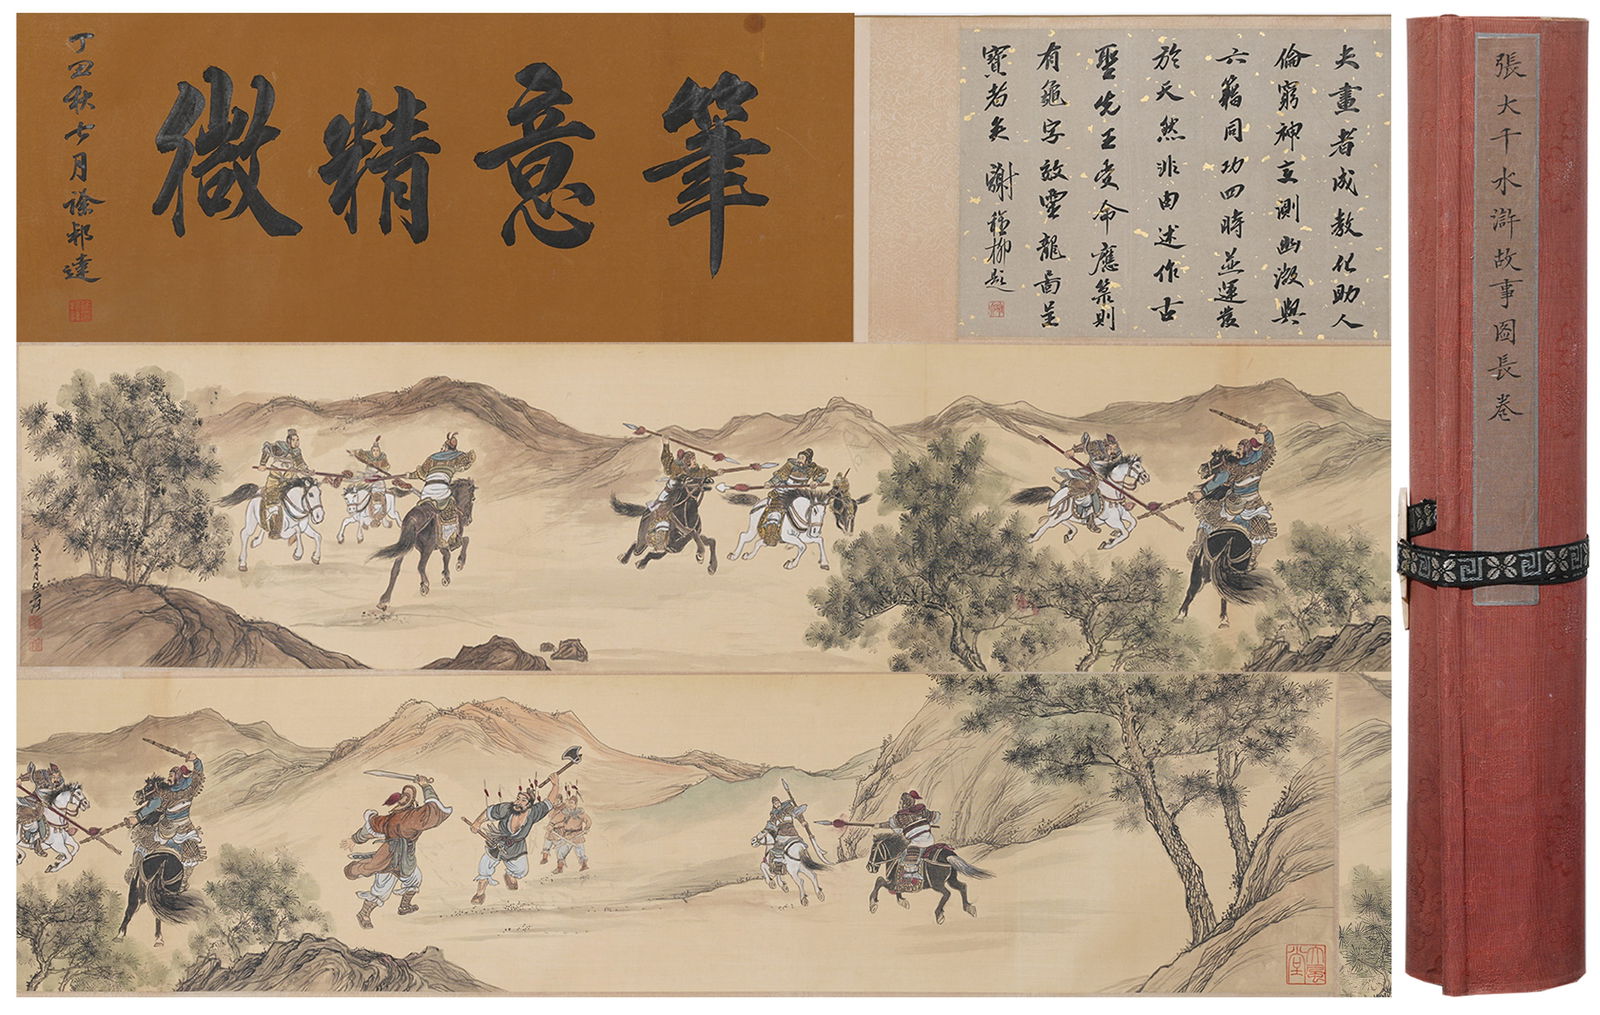 筆意精微
丁丑秋七月徐邦達
夫畫者成教化助人
倫窮神變測幽微與
六籍同功四時並運發
於天然非由述作古
聖先王受命應籙則
有龜字效靈龍圖呈
寶者矣 謝稚柳題
張大千水滸故事圖長卷
大風堂